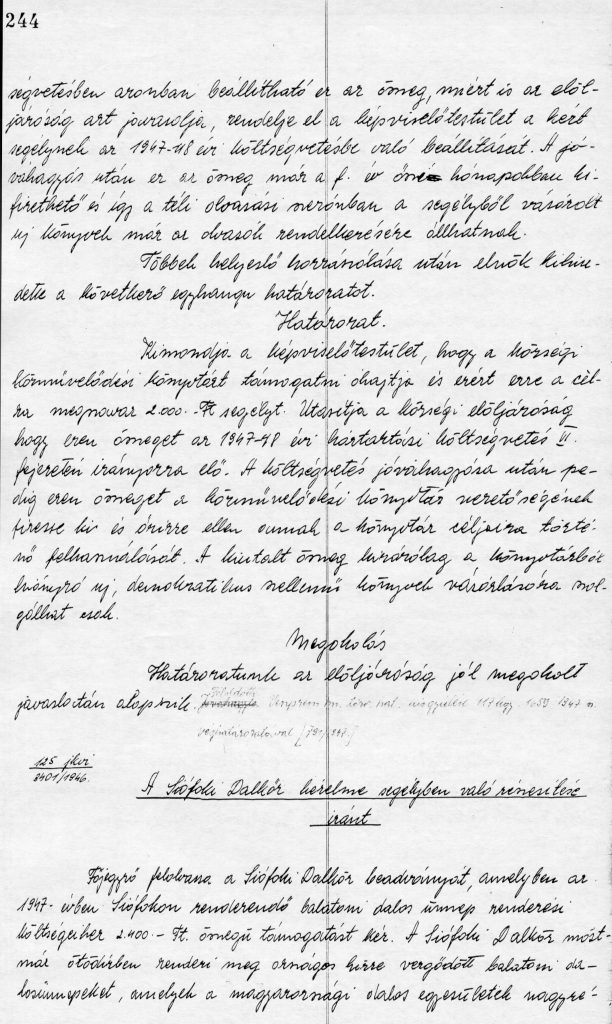 244
ségvetésben azonban beállítható ez az összeg, miért is az elöl-
járóság azt javasolja, rendelje el a képviselőtestület a kért
segélynek az 1947-48 évi költségvetésbe való beállítását. A jó-
váhagyás után ez az összeg már a f. év őszi hónapokban ki-
fizethető és így a téli olvasási szezónban a segélyből vásárolt
uj könyvek már az olvasók rendelkezésére állhatnak.
Többek helyeslő hozzászólása után elnök kihir-
dette a következő egyhangu határozatot.
Határozat.
Kimondja a képviselőtestület, hogy a községi
közművelődési könyvtárt támogatni óhajtja és ezért erre a cél-
ra megszavaz 2.000.- Ft segélyt. Utasítja a községi elöljáróság
hogy ezen összeget az 1947-48 évi háztartási költségvetés VI.
fejezetén irányozza elő. A költségvetés jóváhagyása után pe-
dig ezen összeget a közművelődési könyvtár vezetőségének
fizesse ki és őrizze ellen annak a könyvtár céljaira törté-
nő felhasználását. A kiutalt összeg kizárólag a könyvtárból
hiányzó uj, demokratikus szellemű könyvek vásárlására szol-
gálhat csak.
Megokolás
Határozatunk az elöljáróság jól megokolt
javaslatán alapszik. Veszprém vm. törv. hat. kisgyűlése 117 kgy. 1947 sz.
véghatározatával
125 jkvi
8401/1946.
A Siófoki Dalkör kérelme segélyben való részesítése
iránt
Főjegyző felolvassa a Siófoki Dalkör beadványát, amelyben az
1947- évben Siófokon rendezendő balatoni dalos ünnep rendezési
költségeihez 2.400.- Ft. összegü támogatást kér. A Siófoki Dalkör most-
már ötödízben rendezi meg országos hírre vergődött balatoni da-
losünnepeket, amelyek a magyarországi dalos egyesületek nagyré-